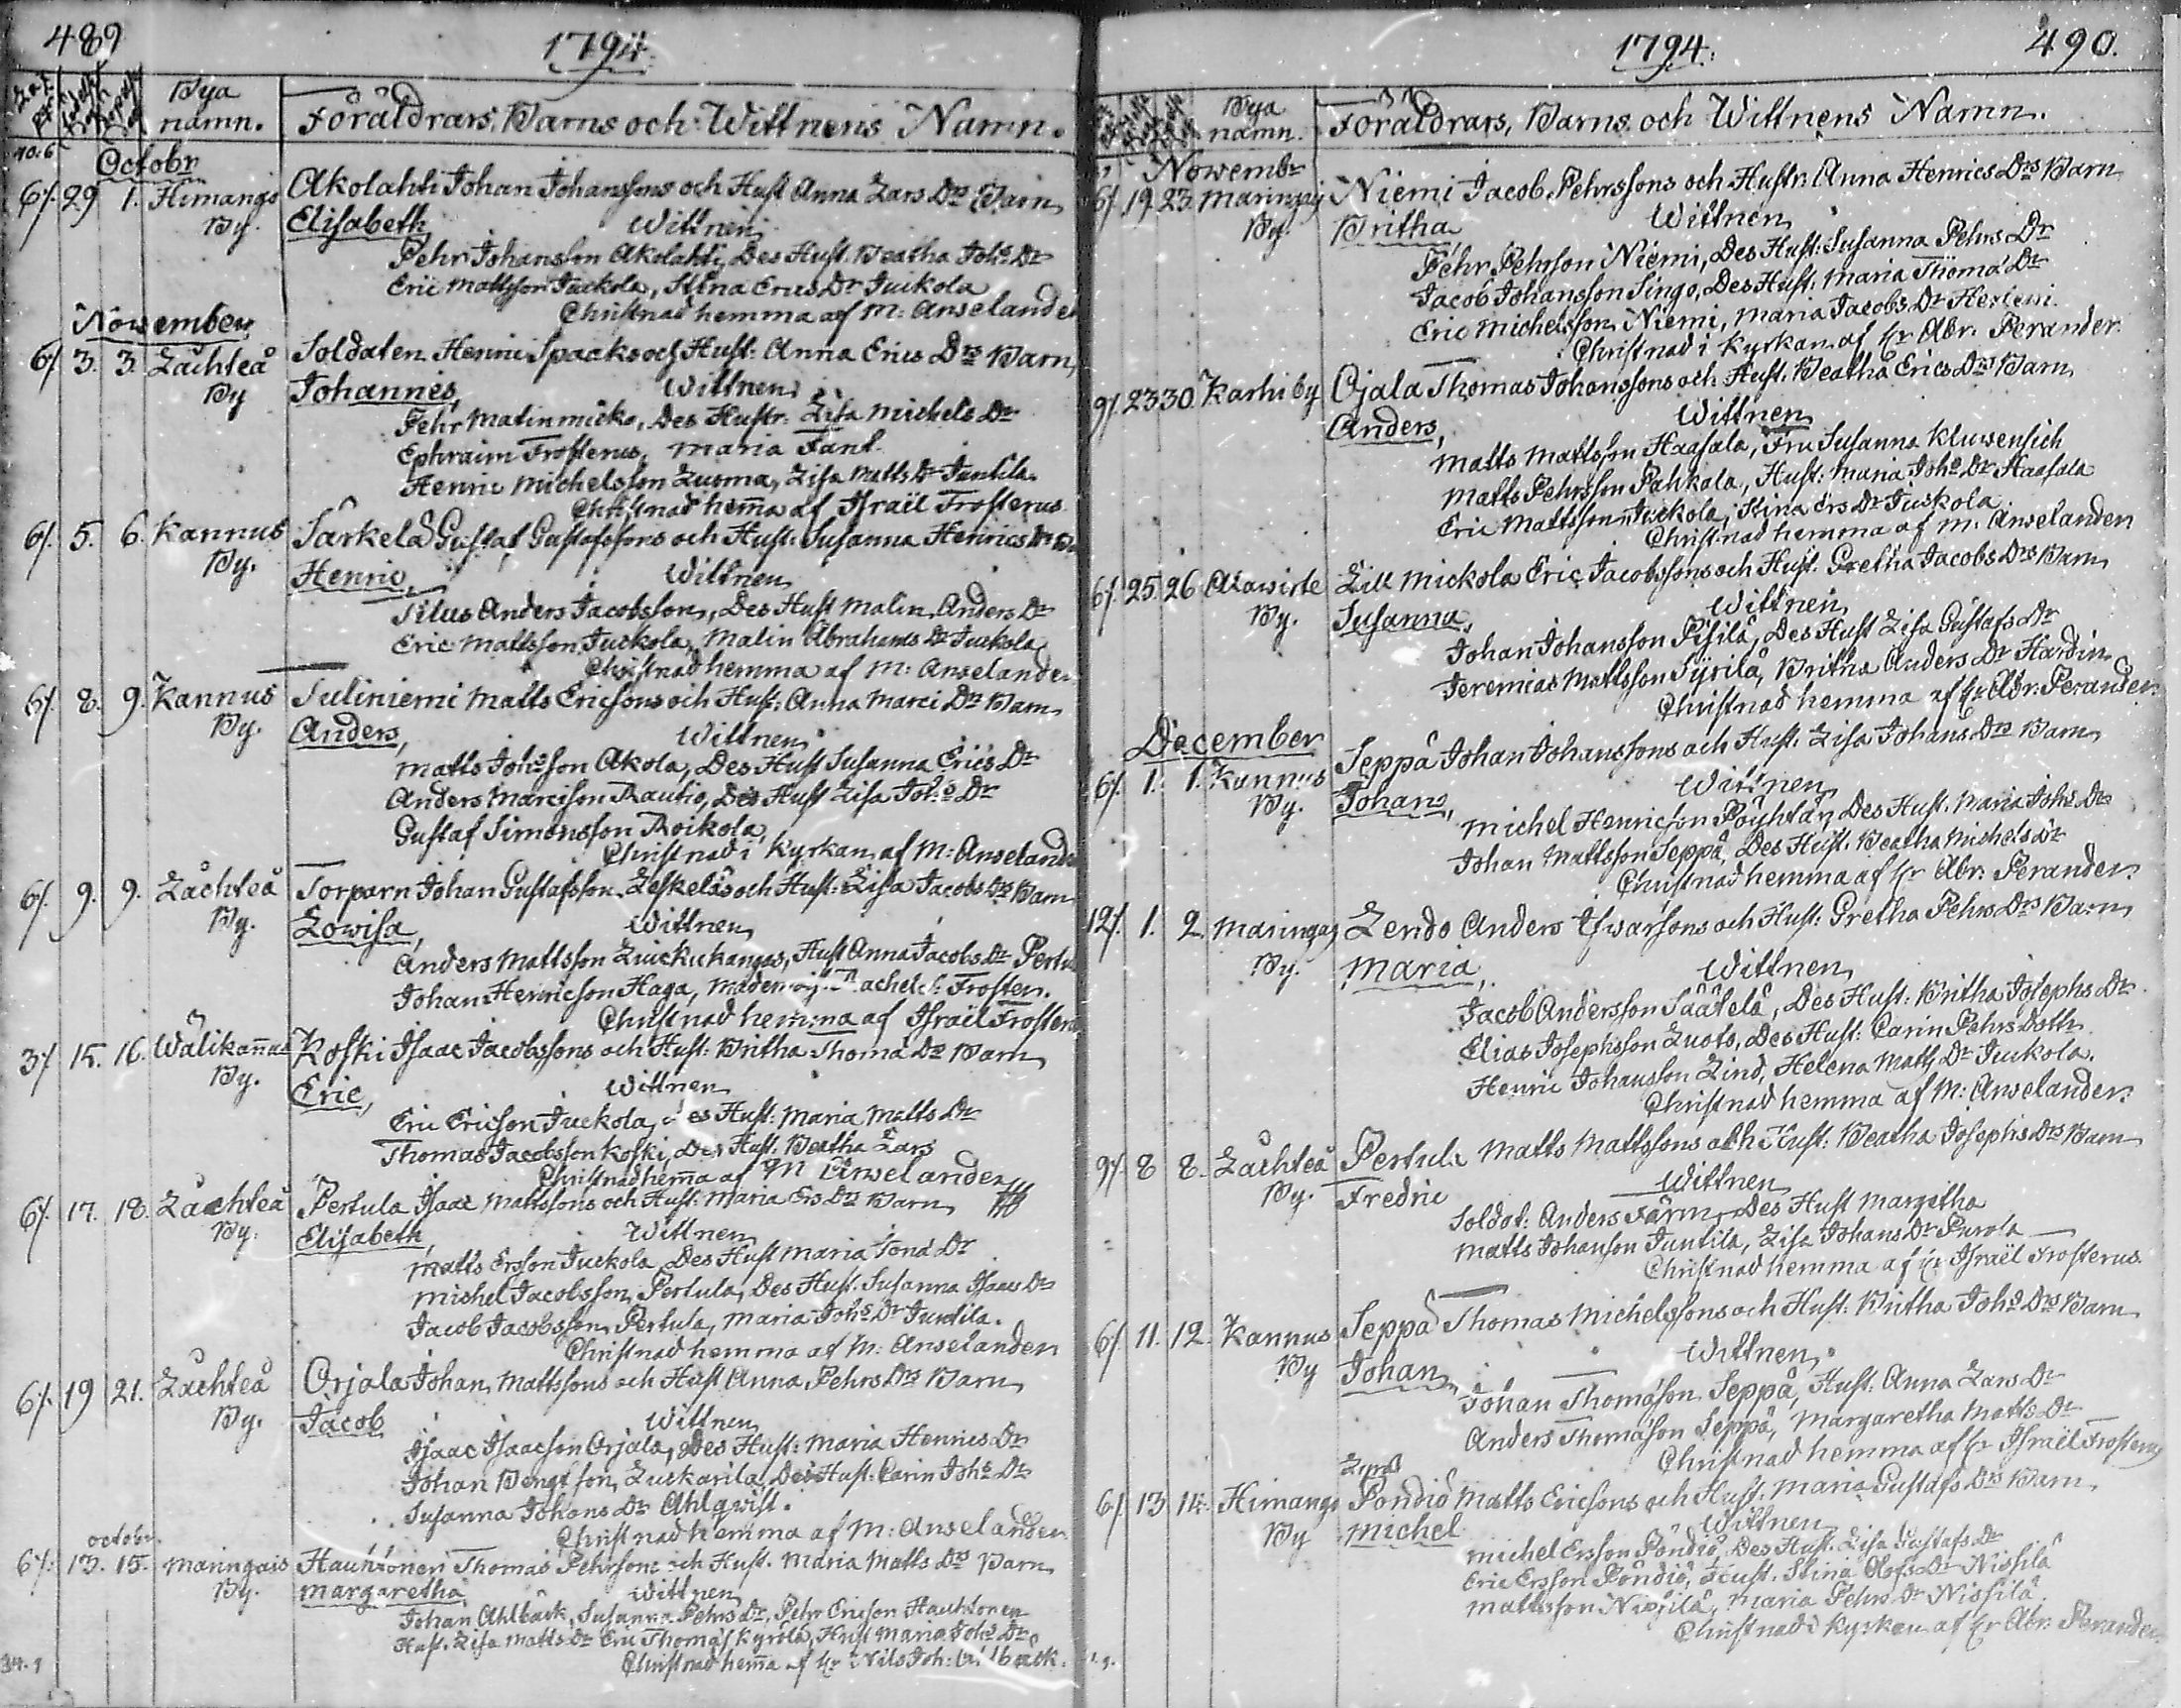 489
1794.
Bya namn.
Föräldrars, Barns och Wittnens Namn.
Octobr
6/. 29 1. Himango Akolahti Johan Johanssons och Hust Anna Lars Drs Barn
By. Elisabeth, Wittnen
Pehr Johansson Akolahti, Des Hust. Beatha Johs Dr
Eric Mattsson Juckola, Stina Erics Dr Juckola
Christnad hemma af M: Anselander
November
6/. 3. 3. Låchteå Soldaten Henric Spacks och Hust: Anna Erics Drs Barn
By Johannes, Wittnen
Pehr Matinmicko, Des Hustr: Lisa Michels Dr
Ephraim Frosterus, Maria Fant.
Henric Michelsson Luoma, Lisa Matts Dr Juntila.
Christnad hem̅a af Israël Frosterus
6/. 5. 6. Kannus Särkelä Gustaf Gustafssons och Hust: Susanna Henrics Drs
By. Henric, Wittnen
Anders Jacobsson, Des Hust Malin Anders Dr
Eric Mattsson Juckola, Malin Abrahams Dr Juckola
Christnad hemma af M: Anselander
6/. 8. 9. Kannus Suliniemi Matts Ericsons och Hust: Anna Marci Drs Barn
By. Anders, Wittnen
Matts Johsson Akola, Des Hust Susanna Erics Dr
Anders Marcisson Rautio, Des Hust Lisa Johs Dr
Gustaf Simonsson Roikola,
Christnad i Kyrkan af M: Anseland
6/. 9. 9. Låchteå Torparn Johan Gustafsson Leskeläs och Hust: Lisa Jacobs Drs Barn
By. Lowisa, Wittnen
Anders Mattsson Luickukangas, Hust Anna Jacobs Dr
Johan Henricson Haga, Rachel Frosten.
Christnad hemma af Israël Froster
3/. 15. 16. Wälikan̅us Koski Isaac Jacobssons och Hust: Britha Thomæ Drs Barn
By. Eric, Wittnen
Eric Ericson Juckola, des Hust: Maria Matts Dr
Thomas Jacobsson Koski, Des Hust. Beatha Lars
Christnad hem̅a af M Anselander
6/. 17. 18. Låchteå Pertula Isaac Mattssons och Hust: Maria Ers Drs Barn
By. Elisabeth, Wittnen
Matts Ersson Juckola, Des Hust Maria Jonæ Dr
Michel Jacobsson Pertula, Des Hust. Susanna Isaacs Dr
Jacob Jacobsson Pertula, Maria Johs Dr Juntila.
Christnad hemma af M: Anselander
6/. 19 21. Låchteå Orjala Johan Mattssons och Hust Anna Pehrs Drs Barn
By. Jacob Wittnen
Isaac Isaacson Orjala, Des Hust: Maria Henrics Dr
Johan Bengtson Luskarila, Des Hust: Carin Johs Dr
Susanna Johans Dr Ahlqwist.
Christnad hemma af M: Anselander
octobr.
6/. 13. 15. Maringais Hauhtonen Thomas Pehrsons och Hust. Maria Matts Drs Barn
By. Margaretha, Wittnen
Johan Ahlbäck, Susanna Pehrs Dr, Pehr Ericson Hauhtonen
Hust. Lisa Matts Dr Eric Thomæs Kyrölä, Hust Maria Johs Dr
Christnad hem̅a af Hr Nils Joh: Ahlbäck.
1794. 490.
Bya namn.
Föräldrars, Barns och Wittnens Namn.
Novembr
6/. 19. 23. Maringais Niemi Jacob Pehrssons och Hustr: Anna Henrics Drs Barn
By. Britha Wittnen
Pehr Pehrsson Niemi, Des Hust: Susanna Pehrs Dr
Jacob Johansson Singo, Des Hust: Maria Thomæ Dr
Eric Michelsson Niemi, Maria Jacobs Dr
Christnad i Kyrkan af Hr Abr: Perander.
9/. 23 30. Karhi by Ojala Thomas Johanssons och Hust. Beatha Erics Drs Barn
Anders, Wittnen
Matts Mattsson Haasala, Fru Susanna Kluwensich
Matts Pehrsson Pahkala, Hust: Maria Johs Dr Haasala
Eric Mattsson Juckola, Stina Ers Dr Juckola
Christnad hemma af M: Anselander
6/. 25 26 Alawirte Lill Mickola Eric Jacobssons och Hust. Gretha Jacobs Drs Barn
By. Susanna, Wittnen
Johan Johansson Pisilä, Des Hust Lisa Gustafs Dr
Jeremias Mattsson Syrilä, Britha Anders Dr Hardin.
Christnad hemma af Hr Abr: Perander
December
6/. 1. 1. Kannus Seppä Johan Johanssons och Hust. Lisa Johans Drs Barn
By. Johans, Wittnen
Michel Henricson Pöyhtäri, Des Hust. Maria Johs Dr
Johan Mattsson Seppä, Des Hust. Beatha Michels Dr
Christnad hemma af Hr Abr: Perander.
12/. 1. 2. Maringais Lerdo Anders Ifwarsons och Hust: Gretha Pehrs Drs Barn
By. Maria, Wittnen
Jacob Andersson Säätelä, Des Hust: Britha Josephs Dr
Elias Josephsson Luoto, Des Hust: Carin Pehrs Doth.
Henric Johansson Lind, Helena Matts Dr Juckola.
Christnad hemma af M: Anselander.
9/. 8 8. Låchteå Pertula Matts Mattssons och Hust: Beatha Josephs Drs Barn
By. Fredric Wittnen
Soldat: Anders Färm, Des Hust Margetha
Matts Johanson Juntila, Lisa Johans Dr Purola
Christnad hemma af Hr Israël Frosterus.
6/. 11. 12. Kannus Seppä Thomas Michelssons och Hust: Britha Johs Drs Barn
By Johan, Wittnen,
Johan Thomason Seppä, Hust: Anna Lars Dr
Anders Thomason Seppä, Margaretha Matts Dr
Christnad hemma af Hr Israël Frosterus
6/. 13 14. Himango Pöndiö Matts Ericsons och Hust: Maria Gustafs Drs Barn
By Michel Wittnen
Michel Ersson Pöndiö, Des Hust. Lisa Gustafs Dr
Eric Ersson Pöndiö, Hust. Stina Olofs Dr Nissilä
Mattsson Nissilä, Maria Pehrs Dr Nissilä
Christnad i Kyrkan af Hr Abr: Perander.